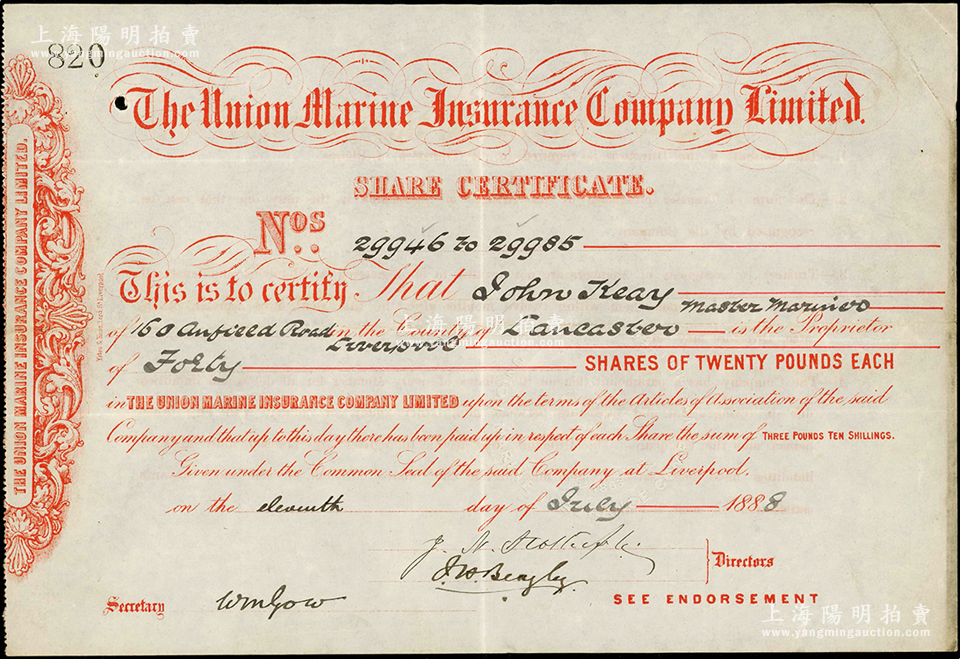 上海陽明拍賣
www.yangmingauction.com
820
The Union Marine Insurance Company Limited.
SHARE CERTIFICATE.
Nos. 29946 to 29985
This is to certify That John Keay Master Mariner
of 60 Anfield Road Liverpool in the County of Lancaster is the Proprietor
of Forty SHARES OF TWENTY POUNDS EACH
in THE UNION MARINE INSURANCE COMPANY LIMITED upon the terms of the Articles of Association of the said
Company and that up to this day there has been paid up in respect of each Share the sum of THREE POUNDS TEN SHILLINGS.
Given under the Common Seal of the said Company at Liverpool,
on the eleventh day of July 1888
J. W. Beazley
Directors
Secretary Wm Gow
SEE ENDORSEMENT
THE UNION MARINE INSURANCE COMPANY LIMITED.
上海陽明拍賣
www.yangmingauction.com
上海陽明拍賣
www.yangmingauction.com